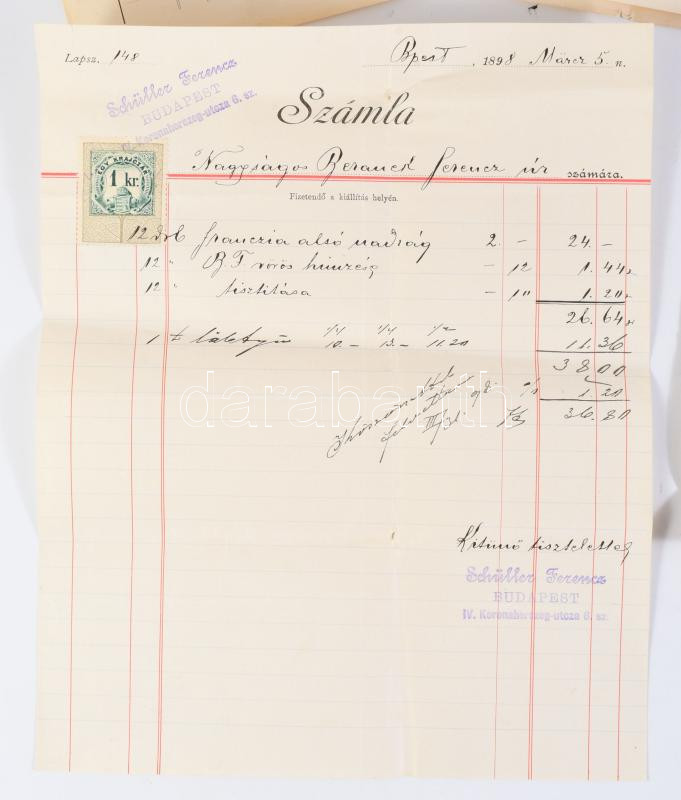 Lapsz. 148
Bpest, 1898 Márcz 5. n.
Schüller Ferencz
BUDAPEST
IV. Koronaherczeg-utcza 6. sz.
Számla
EGY KRAJCZÁR
1 kr.
Nagyságos Ferencz úr számára.
Fizetendő a kiállítás helyén.
12 drb franczia alsó nadrág 2. - 24. -
12 " B. F. vörös hímzéss - 12 1. 44
12 " tisztitása - 10 1. 20
26. 64
1 10.- 13.- 11.20 11. 36
38 00
% 1. 20
36. 80
Köszönettel
III/31. 98.
darabanth
Kitünő tisztelettel
Schüller Ferencz
BUDAPEST
IV. Koronaherczeg-utcza 6. sz.